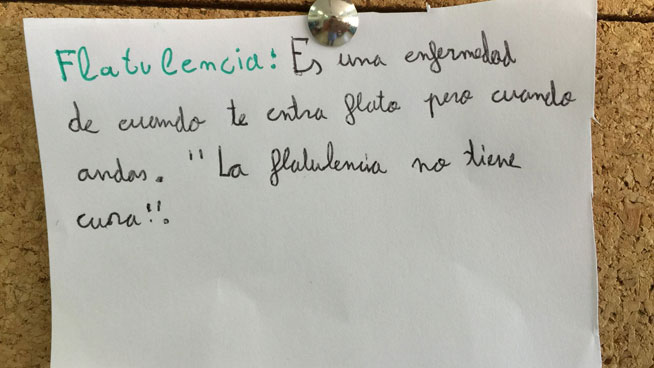 Flatulencia: Es una enfermedad
de cuando te entra flato pero cuando
andas. "La flatulencia no tiene
cura".